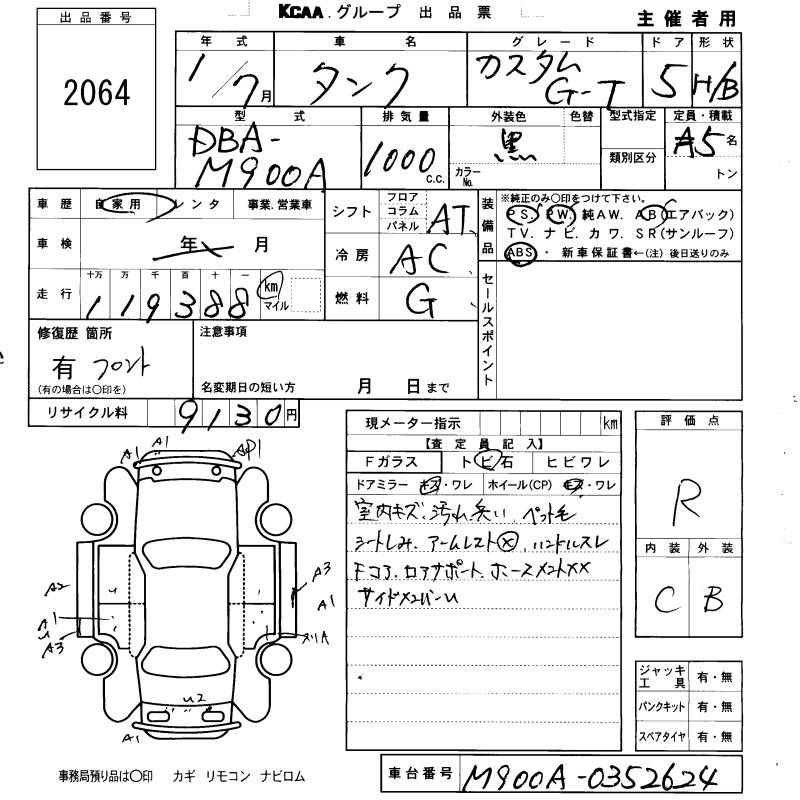 KCAA グループ 出品票
主催者用
出品番号
2064
年式 車名 グレード ドア 形状
1/7月 タンク カスタム G-T 5 H/B
型式 排気量 外装色 色替 型式指定 定員・積載
DBA-M900A 1000 c.c. 黒 カラーNo. 類別区分 5名 トン
車歴 自家用 レンタ 事業.営業車
シフト フロア コラム パネル AT
装備品 ※純正のみ○印をつけて下さい。
PS. PW. 純AW. AB(エアバック)
TV. ナビ. カワ. SR(サンルーフ)
ABS ・ 新車保証書←(注) 後日送りのみ
車検 年 月
冷房 AC
走行 十万 万 千 百 十 一
119388 km マイル
燃料 G
セールスポイント
修復歴 箇所
有 フロント
(有の場合は○印を)
注意事項
名変期日の短い方 月 日まで
リサイクル料 9130円
現メーター指示 km
【査定員記入】
Fガラス トビ石 ヒビワレ
ドアミラー キズ・ワレ ホイール(CP) キズ・ワレ
室内キズ、汚れ、臭い、ペット毛
シートしみ、アームレスト×、ハンドルスレ
Fコア、ロアサポート、ホースメント××
サイドメンバーU
評価点
R
内装 外装
C B
A1 A1 AP1
A2 A3
A1 A1
U
A3
U2
A1
ジャッキ工具 有・無
パンクキット 有・無
スペアタイヤ 有・無
事務局預り品は○印 カギ リモコン ナビロム
車台番号 M900A-0352624